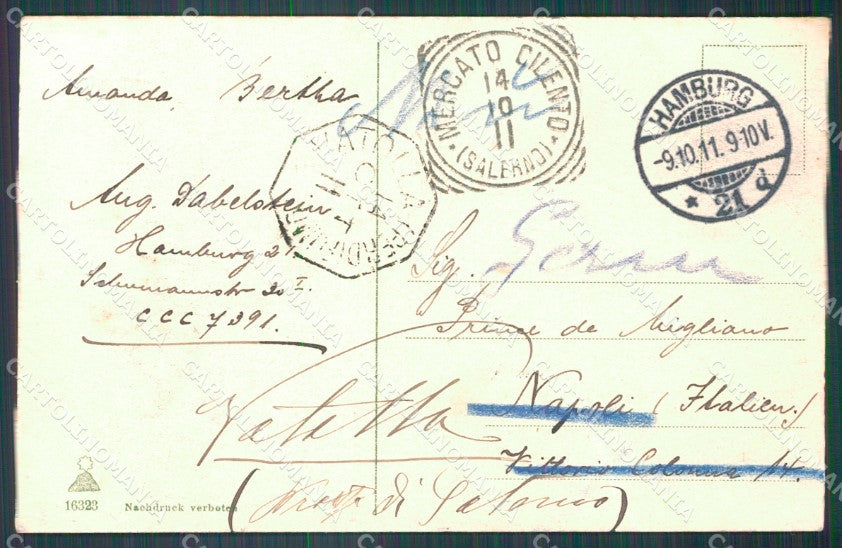 Amanda, Bertha
MERCATO CILENTO
14
10
11
(SALERNO)
HAMBURG
-9.10.11. 9-10V.
* 21 d
Aug. Dabelstein
Hamburg 21
Schumannstr 30 I.
CCC 7391.
Sig.
Prince de Migliano
Napoli (Italien.)
Vittorio Colonna 14.
di Salerno)
16323 Nachdruck verboten
CARTOLINOMANIA